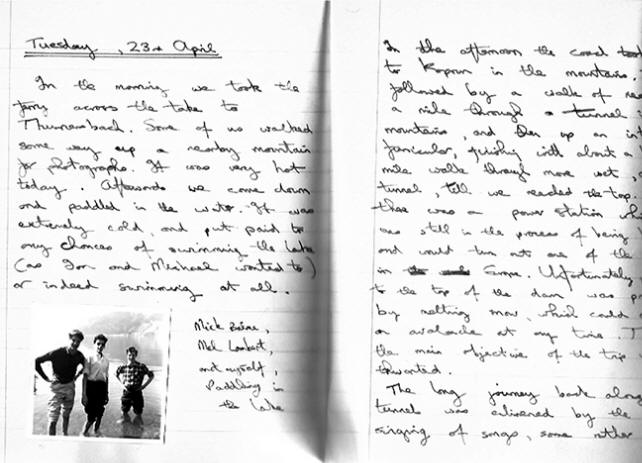 Tuesday, 23rd April
In the morning we took the
ferry across the lake to
Thumersbach. Some of us walked
some way up a nearby mountain
for photographs. It was very hot
today. Afterwards we came down
and paddled in the water. It was
extremely cold, and put paid to
any chances of swimming the lake
(as Ian and Michael wanted to)
or indeed swimming at all.
Mick
Mel Lambert,
and myself,
Paddling in
the lake
In the afternoon the coach took
to Kaprun in the mountains.
followed by a walk of
a mile through a tunnel
mountains, and then up an
funicular, finishing with about a
mile walk through more wet
tunnel, till we reached the top.
there was a power station
was still in the process of being
and would turn out one of the
in Europe. Unfortunately
to the top of the dam was
by melting snow, which could
an avalanche at any time.
the main objective of the trip
thwarted.
The long journey back along
tunnel was enlivened by the
singing of songs, some rather